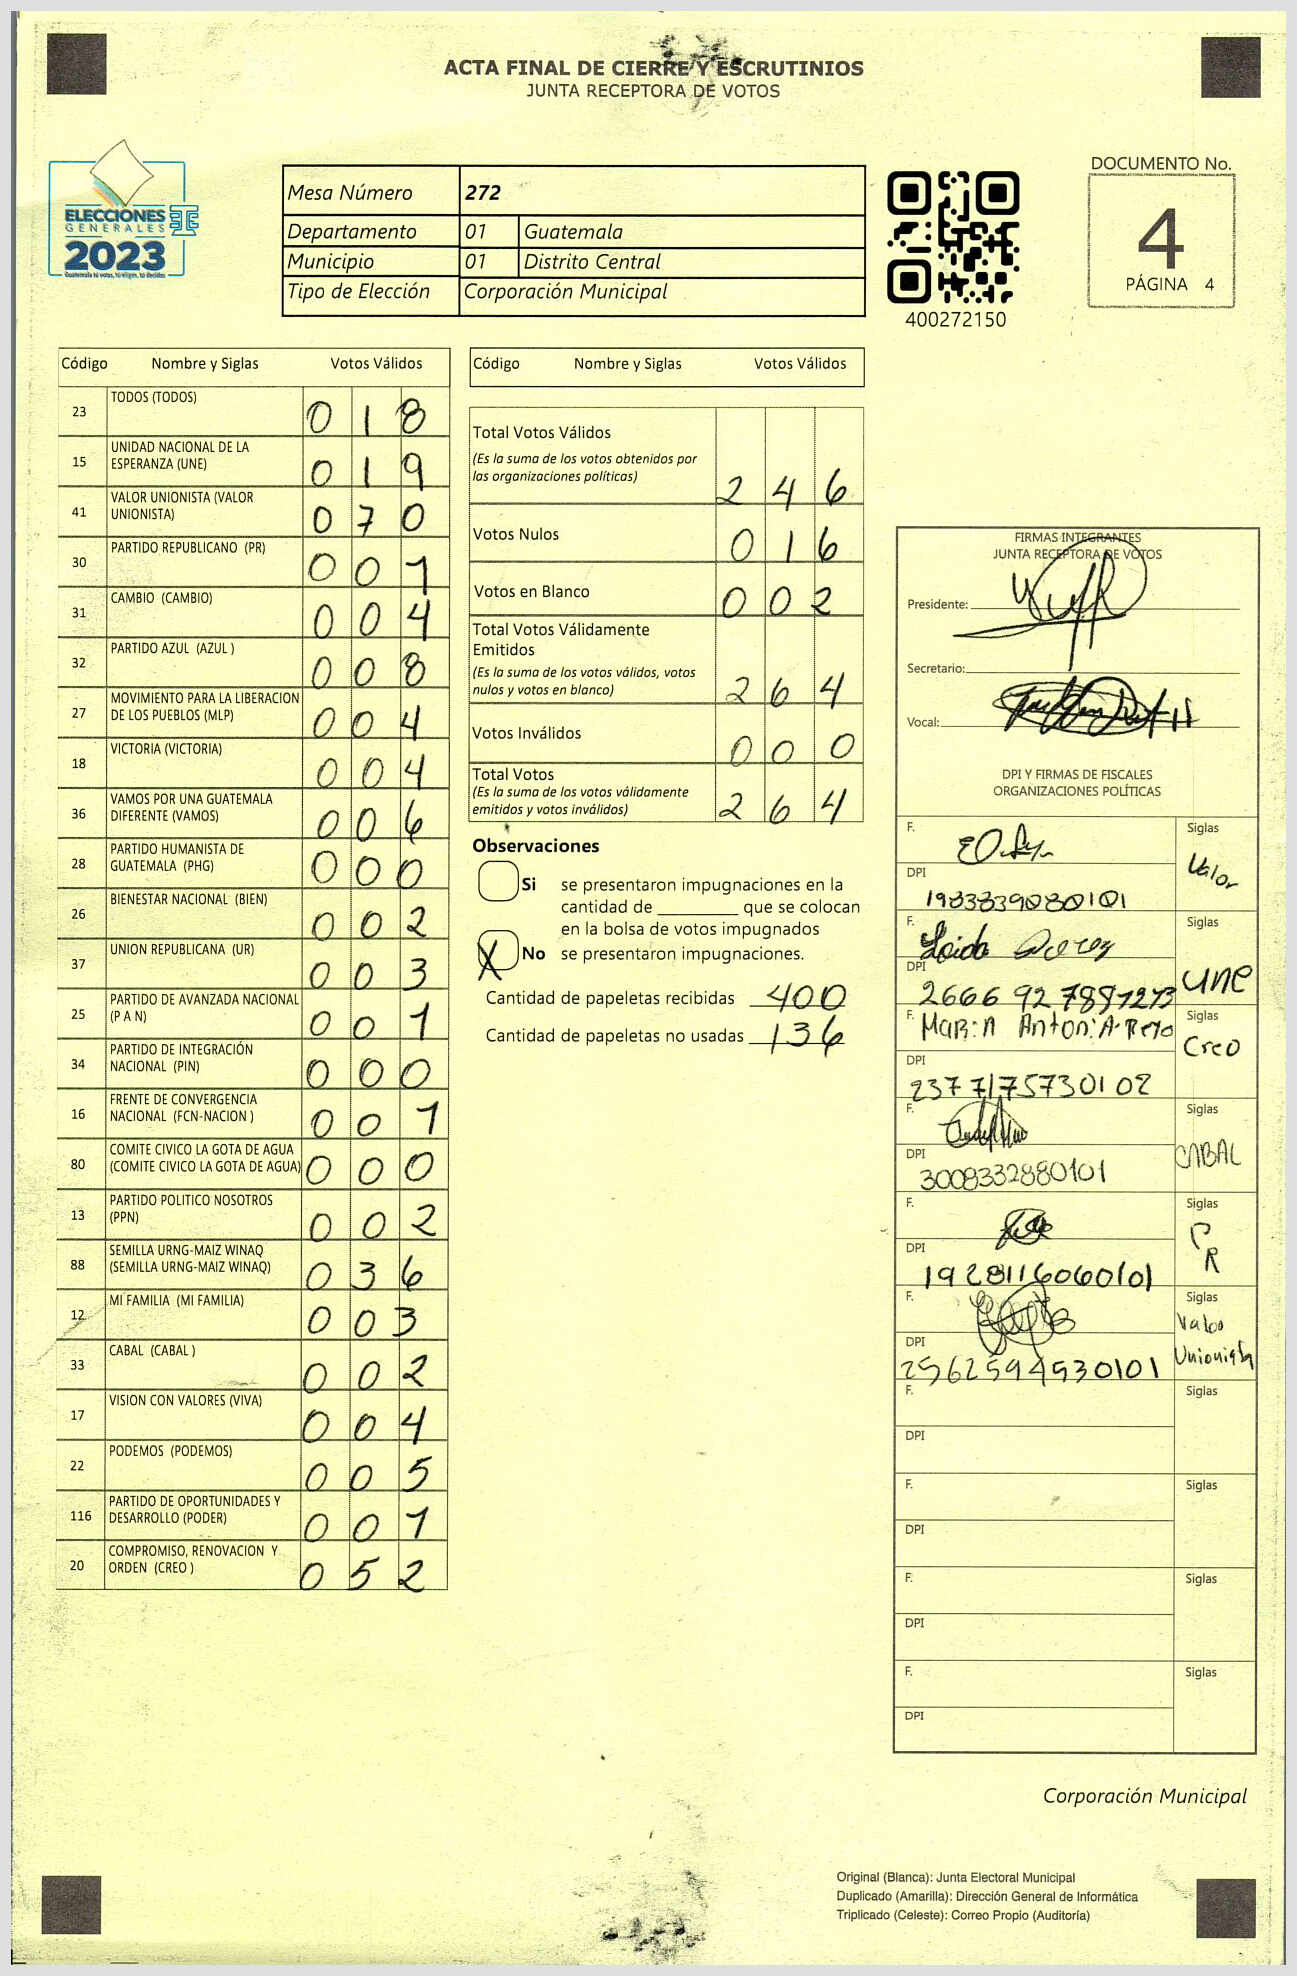 ACTA FINAL DE CIERRE Y ESCRUTINIOS
JUNTA RECEPTORA DE VOTOS
ELECCIONES
GENERALES
2023
Guatemala tú votas, tú eliges, tú decides
Mesa Número 272
Departamento 01 Guatemala
Municipio 01 Distrito Central
Tipo de Elección Corporación Municipal
400272150
DOCUMENTO No.
4
PÁGINA 4
Código Nombre y Siglas Votos Válidos
23 TODOS (TODOS) 0 1 8
15 UNIDAD NACIONAL DE LA
ESPERANZA (UNE) 0 1 9
41 VALOR UNIONISTA (VALOR
UNIONISTA) 0 7 0
30 PARTIDO REPUBLICANO (PR) 0 0 1
31 CAMBIO (CAMBIO) 0 0 4
32 PARTIDO AZUL (AZUL ) 0 0 8
27 MOVIMIENTO PARA LA LIBERACION
DE LOS PUEBLOS (MLP) 0 0 4
18 VICTORIA (VICTORIA) 0 0 4
36 VAMOS POR UNA GUATEMALA
DIFERENTE (VAMOS) 0 0 6
28 PARTIDO HUMANISTA DE
GUATEMALA (PHG) 0 0 0
26 BIENESTAR NACIONAL (BIEN) 0 0 2
37 UNION REPUBLICANA (UR) 0 0 3
25 PARTIDO DE AVANZADA NACIONAL
(P A N) 0 0 1
34 PARTIDO DE INTEGRACIÓN
NACIONAL (PIN) 0 0 0
16 FRENTE DE CONVERGENCIA
NACIONAL (FCN-NACION ) 0 0 1
80 COMITE CIVICO LA GOTA DE AGUA
(COMITE CIVICO LA GOTA DE AGUA) 0 0 0
13 PARTIDO POLITICO NOSOTROS
(PPN) 0 0 2
88 SEMILLA URNG-MAIZ WINAQ
(SEMILLA URNG-MAIZ WINAQ) 0 3 6
12 MI FAMILIA (MI FAMILIA) 0 0 3
33 CABAL (CABAL ) 0 0 2
17 VISION CON VALORES (VIVA) 0 0 4
22 PODEMOS (PODEMOS) 0 0 5
116 PARTIDO DE OPORTUNIDADES Y
DESARROLLO (PODER) 0 0 1
20 COMPROMISO, RENOVACION Y
ORDEN (CREO ) 0 5 2
Código Nombre y Siglas Votos Válidos
Total Votos Válidos
(Es la suma de los votos obtenidos por
las organizaciones políticas) 2 4 6
Votos Nulos 0 1 6
Votos en Blanco 0 0 2
Total Votos Válidamente
Emitidos
(Es la suma de los votos válidos, votos
nulos y votos en blanco) 2 6 4
Votos Inválidos 0 0 0
Total Votos
(Es la suma de los votos válidamente
emitidos y votos inválidos) 2 6 4
Observaciones
Si se presentaron impugnaciones en la
cantidad de ________ que se colocan
en la bolsa de votos impugnados
X No se presentaron impugnaciones.
Cantidad de papeletas recibidas 400
Cantidad de papeletas no usadas 136
FIRMAS INTEGRANTES
JUNTA RECEPTORA DE VOTOS
Presidente:
Secretario:
Vocal:
DPI Y FIRMAS DE FISCALES
ORGANIZACIONES POLÍTICAS
F. Siglas
Valor
DPI
1983839080101
F. Siglas
DPI UNE
2666 92 7887273
F. Siglas
Creo
DPI
2377175730102
F. Siglas
CABAL
DPI
3008332880101
F. Siglas
P
R
DPI
1928116060101
F. Siglas
Valor
Unionista
DPI
2562594530101
F. Siglas
DPI
F. Siglas
DPI
F. Siglas
DPI
F. Siglas
DPI
Corporación Municipal
Original (Blanca): Junta Electoral Municipal
Duplicado (Amarilla): Dirección General de Informática
Triplicado (Celeste): Correo Propio (Auditoría)